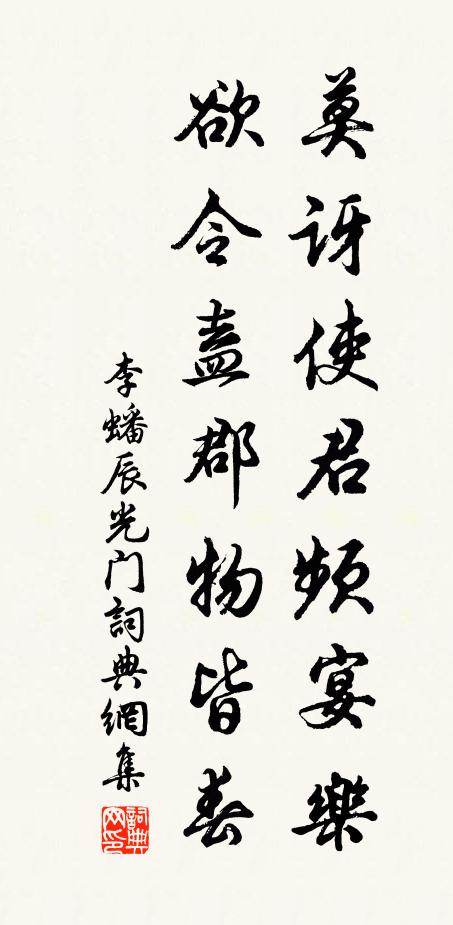 莫訝使君頻宴樂
欲令盍郡物皆春
李蟠辰光门詞典網集
詞典网印